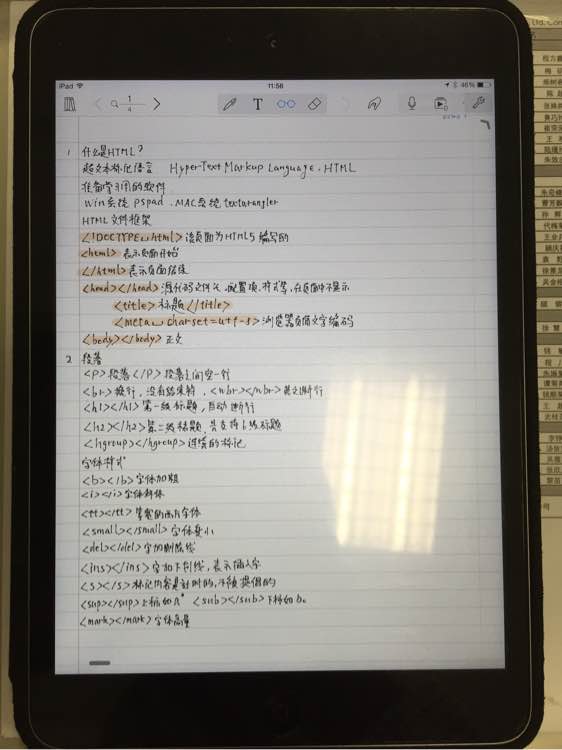 iPad 11:56 46%
1
4
T
1 什么是HTML?
超文本标记语言 HyperText Markup Language. HTML
准备学习用的软件
Win系统 pspad. MAC系统 textwrangler
HTML文件框架
<!DOCTYPE html> 该页面为HTML5编写的
<html> 表示页面开始
</html> 表示页面结束
<head></head> 源代码文件头.配置项.样式等,在页面中不显示
<title>标题</title>
<meta charset=utf-8>浏览器页面文字编码
<body></body> 正文
2 段落
<P>段落</P>段落之间空一行
<br>换行,没有结束符. <wbr></wbr>英文断行
<h1></h1> 第一级标题,自动断行
<h2></h2>第二级标题,共支持6级标题
<hgroup></hgroup>连续的标记
字体样式
<b></b>字体加粗
<i></i>字体斜体
<tt></tt> 等宽的西方字体
<small></small>字体变小
<del></del>字加删除线
<ins></ins>字加下划线,表示插入字
<s></s>标记内容是过时的,不被提倡的
<sup></sup>上标如 <sub></sub>下标如
<mark></mark>字体高亮